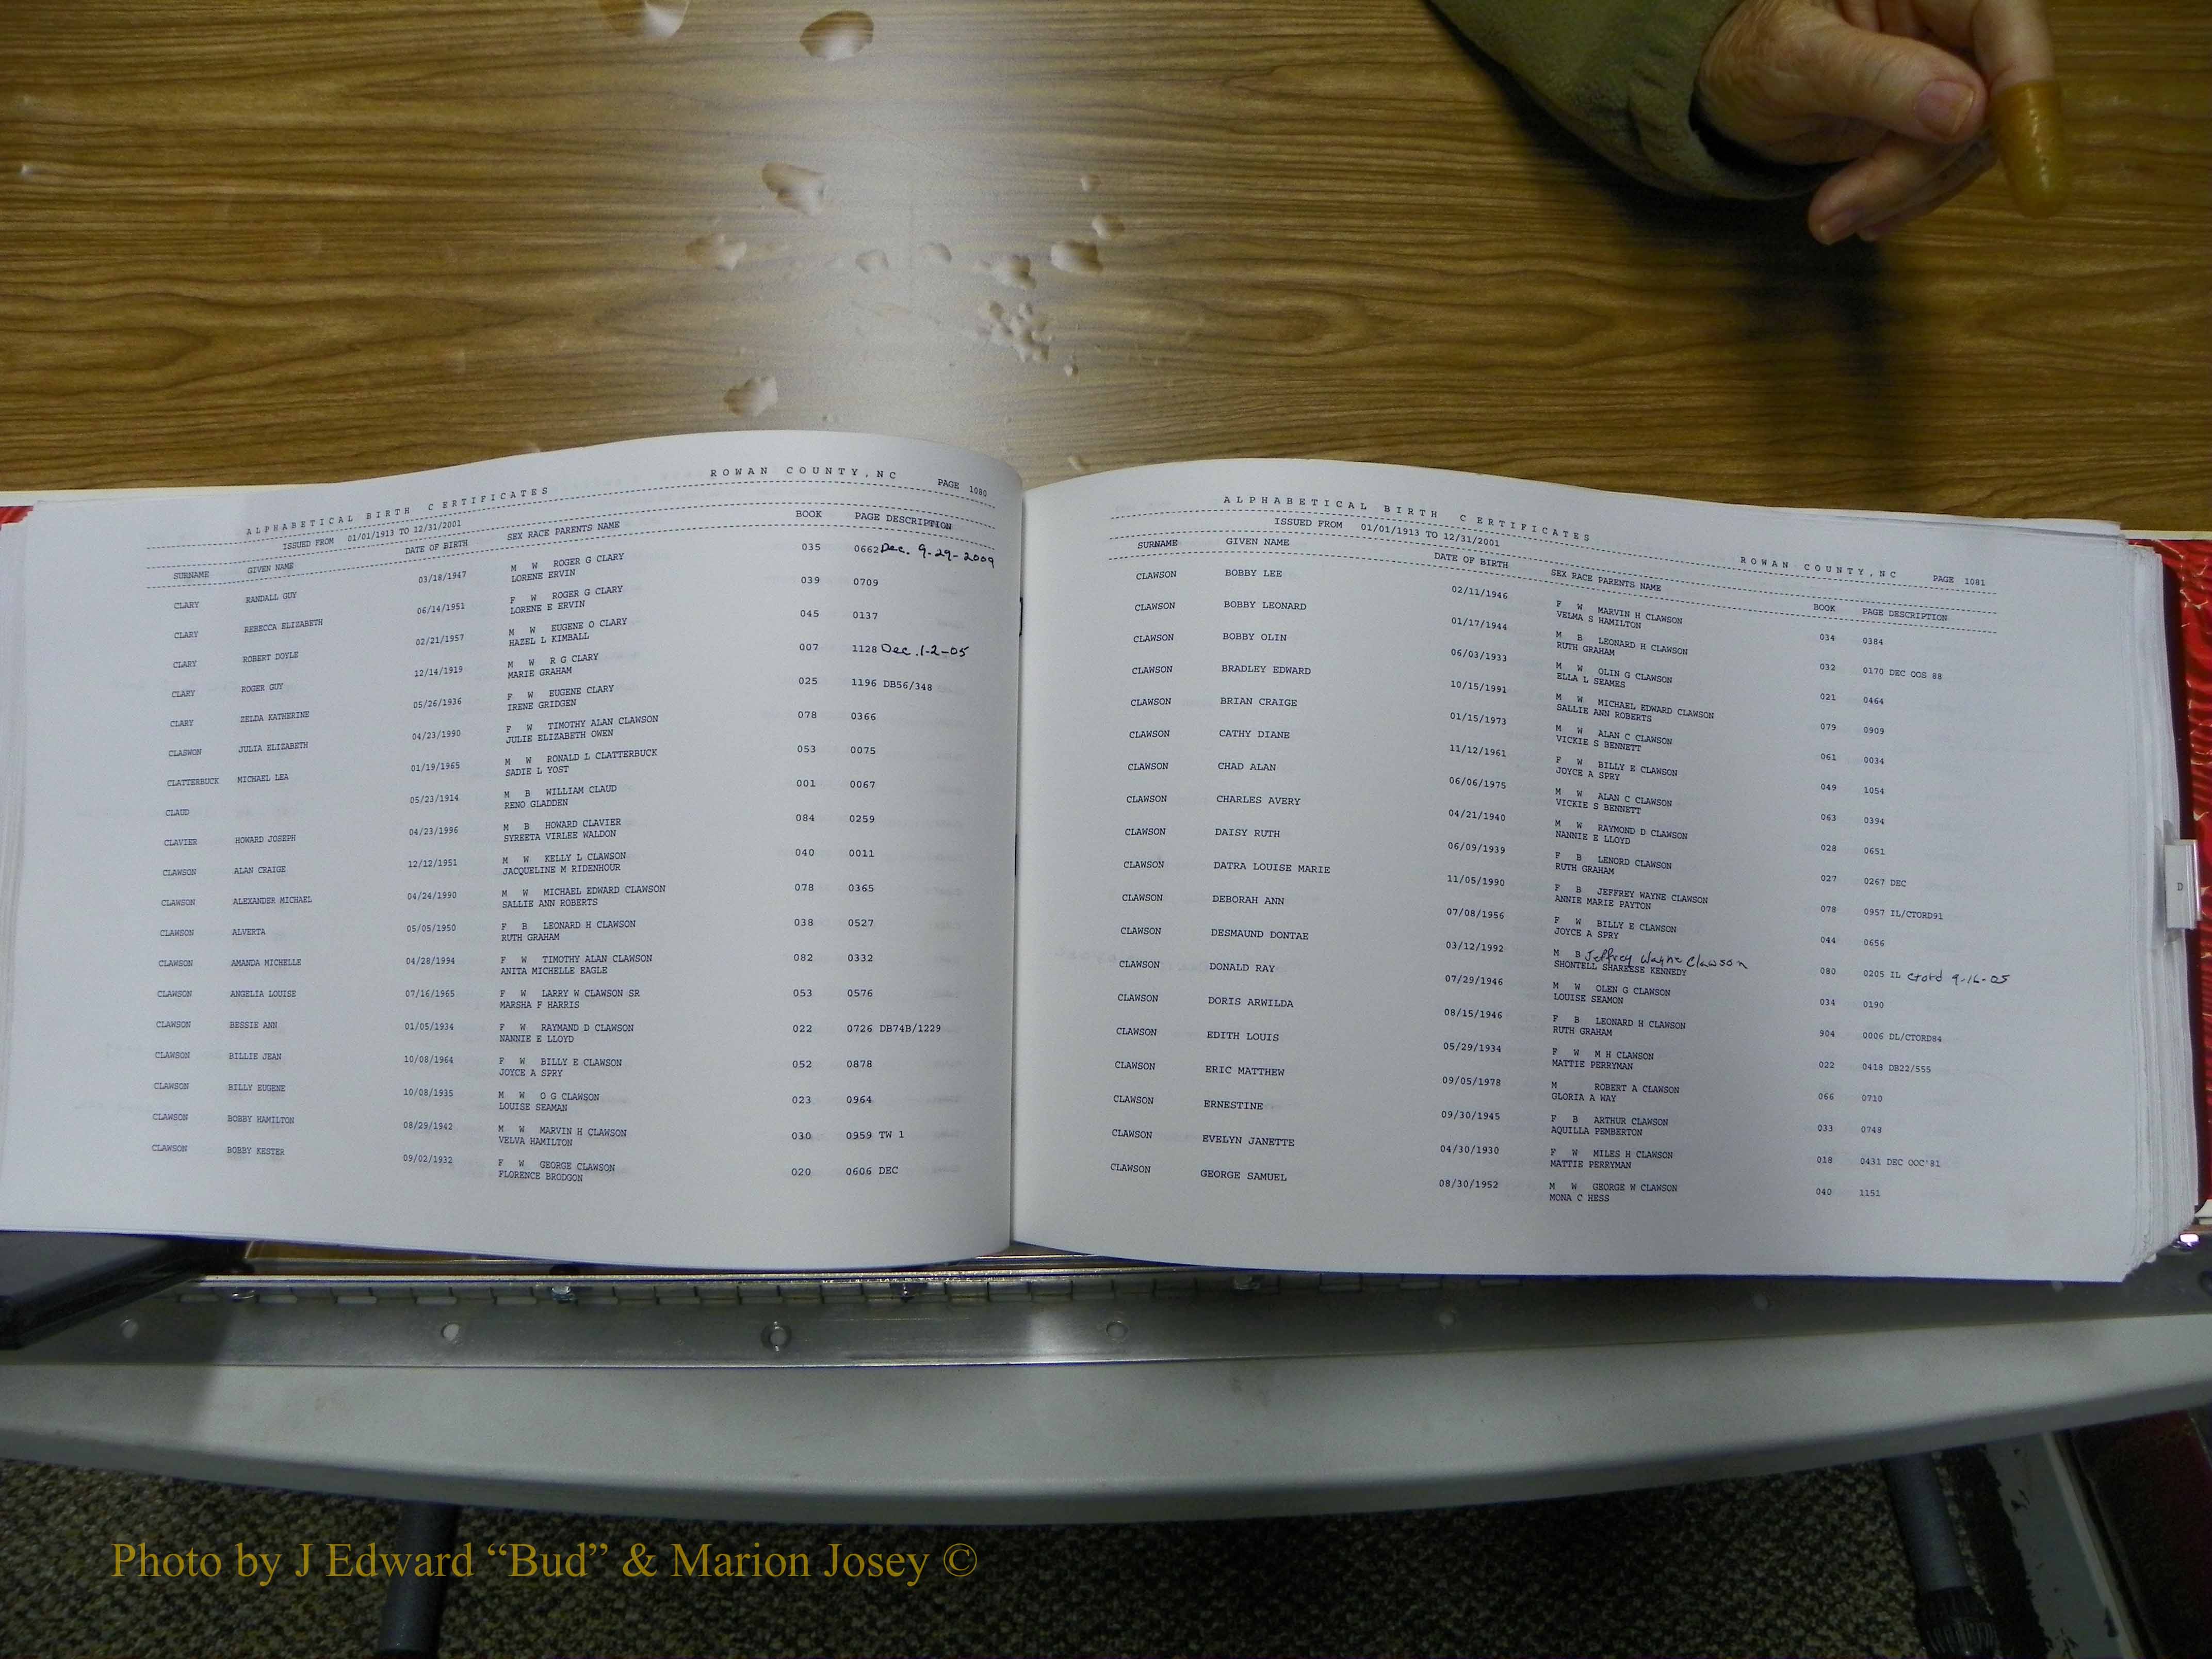 ALPHABETICAL BIRTH CERTIFICATES ROWAN COUNTY, NC PAGE 1080
ISSUED FROM 01/01/1913 TO 12/31/2001
SURNAME GIVEN NAME DATE OF BIRTH SEX RACE PARENTS NAME BOOK PAGE DESCRIPTION
CLARY RANDALL GUY 03/18/1947 M W ROGER G CLARY 035 0662 Dec. 9-29-2009
LORENE ERVIN
CLARY REBECCA ELIZABETH 06/14/1951 F W ROGER G CLARY 039 0709
LORENE E ERVIN
CLARY ROBERT DOYLE 02/21/1957 M W EUGENE O CLARY 045 0137
HAZEL L KIMBALL
CLARY ROGER GUY 12/14/1919 M W R G CLARY 007 1128 Dec. 1-2-05
MARIE GRAHAM
CLARY ZELDA KATHERINE 05/26/1936 F W EUGENE CLARY 025 1196 DB56/348
IRENE GRIDGEN
CLASWON JULIA ELIZABETH 04/23/1990 F W TIMOTHY ALAN CLAWSON 078 0366
JULIE ELIZABETH OWEN
CLATTERBUCK MICHAEL LEA 01/19/1965 M W RONALD L CLATTERBUCK 053 0075
SADIE L YOST
CLAUD 05/23/1914 M B WILLIAM CLAUD 001 0067
RENO GLADDEN
CLAVIER HOWARD JOSEPH 04/23/1996 M B HOWARD CLAVIER 084 0259
SYREETA VIRLEE WALDON
CLAWSON ALAN CRAIGE 12/12/1951 M W KELLY L CLAWSON 040 0011
JACQUELINE M RIDENHOUR
CLAWSON ALEXANDER MICHAEL 04/24/1990 M W MICHAEL EDWARD CLAWSON 078 0365
SALLIE ANN ROBERTS
CLAWSON ALVERTA 05/05/1950 F B LEONARD H CLAWSON 038 0527
RUTH GRAHAM
CLAWSON AMANDA MICHELLE 04/28/1994 F W TIMOTHY ALAN CLAWSON 082 0332
ANITA MICHELLE EAGLE
CLAWSON ANGELIA LOUISE 07/16/1965 F W LARRY W CLAWSON SR 053 0576
MARSHA F HARRIS
CLAWSON BESSIE ANN 01/05/1934 F W RAYMAND D CLAWSON 022 0726 DB74B/1229
NANNIE E LLOYD
CLAWSON BILLIE JEAN 10/08/1964 F W BILLY E CLAWSON 052 0878
JOYCE A SPRY
CLAWSON BILLY EUGENE 10/08/1935 M W O G CLAWSON 023 0964
LOUISE SEAMAN
CLAWSON BOBBY HAMILTON 08/29/1942 M W MARVIN H CLAWSON 030 0959 TW 1
VELVA HAMILTON
CLAWSON BOBBY KESTER 09/02/1932 F W GEORGE CLAWSON 020 0606 DEC
FLORENCE BRODGON
ALPHABETICAL BIRTH CERTIFICATES ROWAN COUNTY, NC PAGE 1081
ISSUED FROM 01/01/1913 TO 12/31/2001
SURNAME GIVEN NAME DATE OF BIRTH SEX RACE PARENTS NAME BOOK PAGE DESCRIPTION
CLAWSON BOBBY LEE 02/11/1946 F W MARVIN H CLAWSON 034 0384
VELMA S HAMILTON
CLAWSON BOBBY LEONARD 01/17/1944 M B LEONARD H CLAWSON 032 0170 DEC OOS 88
RUTH GRAHAM
CLAWSON BOBBY OLIN 06/03/1933 M W OLIN G CLAWSON 021 0464
ELLA L SEAMES
CLAWSON BRADLEY EDWARD 10/15/1991 M W MICHAEL EDWARD CLAWSON 079 0909
SALLIE ANN ROBERTS
CLAWSON BRIAN CRAIGE 01/15/1973 M W ALAN C CLAWSON 061 0034
VICKIE S BENNETT
CLAWSON CATHY DIANE 11/12/1961 F W BILLY E CLAWSON 049 1054
JOYCE A SPRY
CLAWSON CHAD ALAN 06/06/1975 M W ALAN C CLAWSON 063 0394
VICKIE S BENNETT
CLAWSON CHARLES AVERY 04/21/1940 M W RAYMOND D CLAWSON 028 0651
NANNIE E LLOYD
CLAWSON DAISY RUTH 06/09/1939 F B LENORD CLAWSON 027 0267 DEC
RUTH GRAHAM
CLAWSON DATRA LOUISE MARIE 11/05/1990 F B JEFFREY WAYNE CLAWSON 078 0957 IL/CTORD91
ANNIE MARIE PAYTON
CLAWSON DEBORAH ANN 07/08/1956 F W BILLY E CLAWSON 044 0656
JOYCE A SPRY
CLAWSON DESMAUND DONTAE 03/12/1992 M B Jeffrey Wayne Clawson 080 0205 IL Ctord 9-16-05
SHONTELL SHAREESE KENNEDY
CLAWSON DONALD RAY 07/29/1946 M W OLEN G CLAWSON 034 0190
LOUISE SEAMON
CLAWSON DORIS ARWILDA 08/15/1946 F B LEONARD H CLAWSON 904 0006 DL/CTORD84
RUTH GRAHAM
CLAWSON EDITH LOUIS 05/29/1934 F W M H CLAWSON 022 0418 DB22/555
MATTIE PERRYMAN
CLAWSON ERIC MATTHEW 09/05/1978 M ROBERT A CLAWSON 066 0710
GLORIA A WAY
CLAWSON ERNESTINE 09/30/1945 F B ARTHUR CLAWSON 033 0748
AQUILLA PEMBERTON
CLAWSON EVELYN JANETTE 04/30/1930 F W MILES H CLAWSON 018 0431 DEC OOC'81
MATTIE PERRYMAN
CLAWSON GEORGE SAMUEL 08/30/1952 M W GEORGE W CLAWSON 040 1151
MONA C HESS
D
Photo by J Edward “Bud” & Marion Josey ©